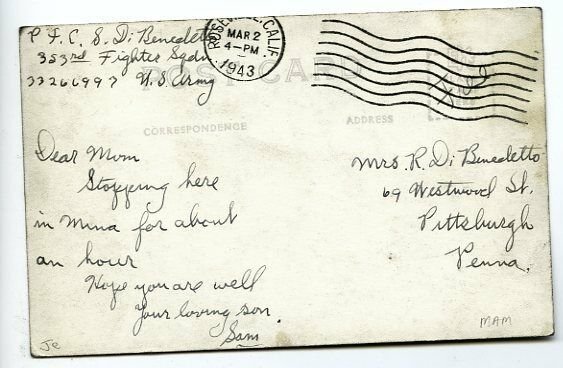 P.F.C. S. Di Benedetto
353rd Fighter Sqdn
33266997 U.S. Army
ROSEVILLE, CALIF.
MAR 2
4-PM
1943
Free
POST CARD
CORRESPONDENCE
ADDRESS
Dear Mom
Stopping here
in Mina for about
an hour
Hope you are well
Your loving son
Sam
Mrs. R. Di Benedetto
69 Westwood St.
Pittsburgh
Penna.
Je
MAM